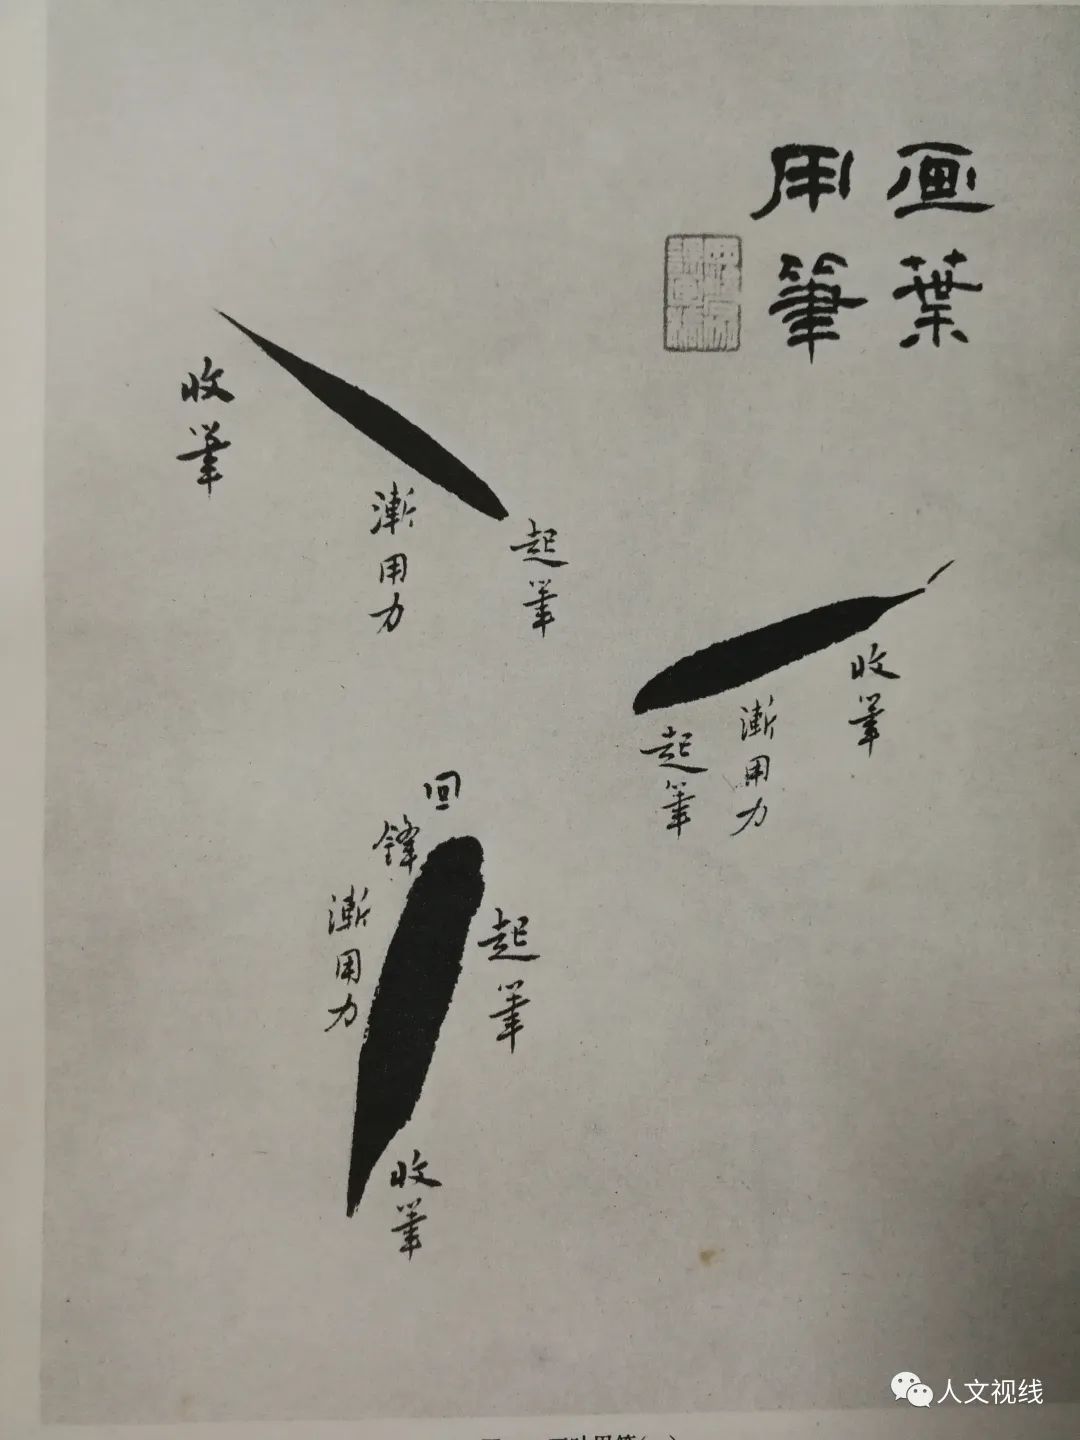 画葉
用筆
收筆
漸用力
起筆
收筆
漸用力
起筆
回鋒
漸用力
起筆
收筆
人文视线